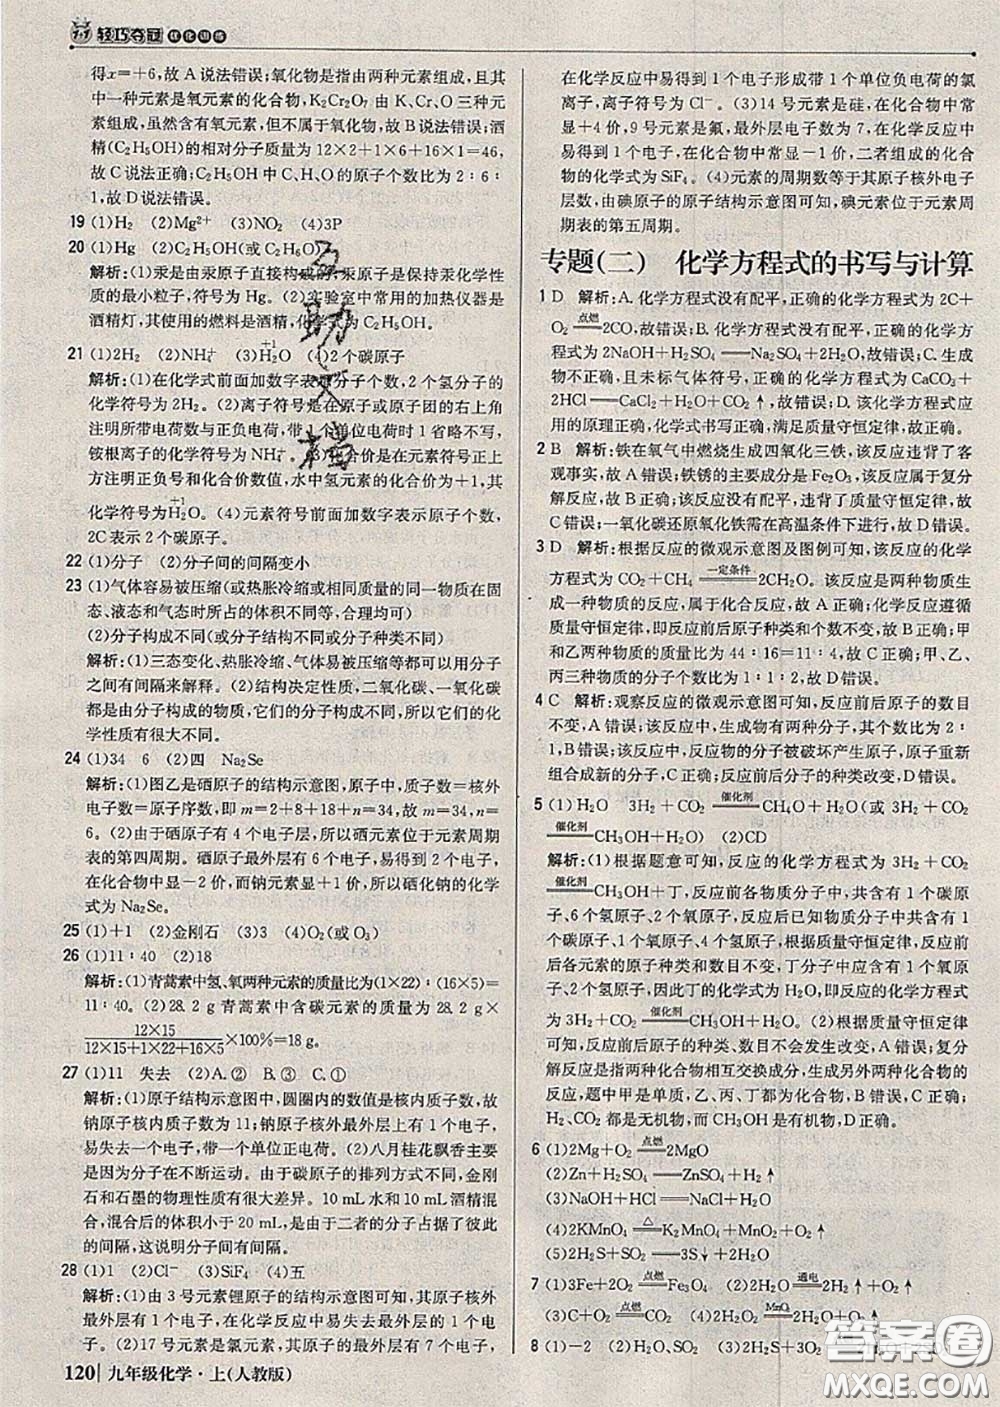 1+1 轻巧夺冠 优化训练
得x=+6,故A说法错误;氧化物是指由两种元素组成,且其
中一种元素是氧元素的化合物,K₂Cr₂O₇由K、Cr、O三种元
素组成,虽然含有氧元素,但不属于氧化物,故B说法错误;酒
精(C₂H₅OH)的相对分子质量为12×2+1×6+16×1=46,
故C说法正确;C₂H₅OH中C、H、O的原子个数比为2∶6∶
1,故D说法错误。
19 (1)H₂ (2)Mg²⁺ (3)NO₂ (4)3P
20 (1)Hg (2)C₂H₅OH(或C₂H₆O)
解析:(1)汞是由汞原子直接构成的,汞原子是保持汞化学性
质的最小粒子,符号为Hg。(2)实验室中常用的加热仪器是
酒精灯,其使用的燃料是酒精,化学式为C₂H₅OH。
21 (1)2H₂ (2)NH₄⁺ (3)H₂O(H上方标+1) (4)2个碳原子
解析:(1)在化学式前面加数字表示分子个数,2个氢分子的
化学符号为2H₂。(2)离子符号是在原子或原子团的右上角
注明所带电荷数与正负电荷,带1个单位电荷时1省略不写,
铵根离子的化学符号为NH₄⁺。(3)化合价是在元素符号正上
方标注正负号和化合价数值,水中氢元素的化合价为+1,其
化学符号为H₂O。(4)元素符号前面加数字表示原子个数,
2C表示2个碳原子。
22 (1)分子 (2)分子间的间隔变小
23 (1)气体容易被压缩(或热胀冷缩或相同质量的同一物质在固
态、液态和气态时所占的体积不同等,合理均可)
(2)分子构成不同(或分子结构不同或分子种类不同)
解析:(1)三态变化、热胀冷缩、气体易被压缩等都可以用分子
之间有间隔来解释。(2)结构决定性质,二氧化碳、一氧化碳
都是由分子构成的物质,它们的分子构成不同,所以它们的化
学性质有很大不同。
24 (1)34 6 (2)四 Na₂Se
解析:(1)图乙是硒原子的结构示意图,原子中,质子数=核外
电子数=原子序数,即m=2+8+18+n=34,故m=34,n=
6。(2)由于硒原子有4个电子层,所以硒元素位于元素周期
表的第四周期。硒原子最外层有6个电子,易得到2个电子,
在化合物中显-2价,而钠元素显+1价,所以硒化钠的化学
式为Na₂Se。
25 (1)+1 (2)金刚石 (3)3 (4)O₂(或O₃)
26 (1)11∶40 (2)18
解析:(1)青蒿素中氢、氧两种元素的质量比为(1×22)∶(16×5)=
11∶40。(2)28.2 g青蒿素中含碳元素的质量为28.2 g×
12×15/(12×15+1×22+16×5)×100%=18 g。
27 (1)11 失去 (2)A.② B.③ C.①
解析:(1)原子结构示意图中,圆圈内的数值是核内质子数,故
钠原子核内质子数为11;钠原子核外最外层有1个电子,容
易失去一个电子,带一个单位正电荷。(2)八月桂花飘香主要
是因为分子在不断运动。由于碳原子的排列方式不同,金刚
石和石墨的物理性质有很大差异。10 mL水和10 mL酒精混
合,混合后的体积小于20 mL,是由于二者的分子占据了彼此
的间隔,这说明分子间有间隔。
28 (1)1 (2)Cl⁻ (3)SiF₄ (4)五
解析:(1)由3号元素锂原子的结构示意图可知,其原子核外
最外层有1个电子,在化学反应中易失去最外层的1个电
子。(2)17号元素是氯元素,其原子的核外最外层有7个电子,
在化学反应中易得到1个电子形成带1个单位负电荷的氯
离子,离子符号为Cl⁻。(3)14号元素是硅,在化合物中常
显+4价,9号元素是氟,最外层电子数为7,在化学反应中
易得到1个电子,在化合物中常显-1价,二者组成的化合
物的化学式为SiF₄。(4)元素的周期数等于其原子核外电子
层数,由碘原子的原子结构示意图可知,碘元素位于元素周
期表的第五周期。
专题(二) 化学方程式的书写与计算
1 D 解析:A.化学方程式没有配平,正确的化学方程式为2C+
O₂ =点燃= 2CO,故错误;B.化学方程式没有配平,正确的化学方
程式为2NaOH+H₂SO₄ == Na₂SO₄+2H₂O,故错误;C.生成
物不正确,且未标气体符号,正确的化学方程式为CaCO₃+
2HCl == CaCl₂+H₂O+CO₂↑,故错误;D.该化学方程式反应
的原理正确,化学式书写正确,满足质量守恒定律,故正确。
2 B 解析:铁在氧气中燃烧生成四氧化三铁,该反应违背了客
观事实,故A错误;铁锈的主要成分是Fe₂O₃,该反应属于复分
解反应,故B正确;该反应没有配平,违背了质量守恒定律,故
C错误;一氧化碳还原氧化铁需在高温条件下进行,故D错误。
3 D 解析:根据反应的微观示意图及图例可知,该反应的化学
方程式为CO₂+CH₄ =一定条件= 2CH₂O,该反应是两种物质生
成一种物质的反应,属于化合反应,故A正确;化学反应遵循
质量守恒定律,即反应前后原子种类和个数不变,故B正确;甲
和乙两种物质的质量比为44∶16=11∶4,故C正确;甲、乙、
丙三种物质的分子个数比为1∶1∶2,故D错误。
4 C 解析:观察反应的微观示意图可知,反应前后原子的数目
不变,A错误;该反应中,生成物有两种分子,其个数比为2∶
1,B错误;该反应中,反应物的分子被破坏产生原子,原子重新
组合成新的分子,C正确;反应前后分子的种类改变,D错误。
5 (1)H₂O 3H₂+CO₂ =催化剂= CH₄O+H₂O(或3H₂+CO₂
=催化剂= CH₃OH+H₂O) (2)CD
解析:(1)根据题意可知,反应的化学方程式为3H₂+CO₂
=催化剂= CH₃OH+丁,反应前各物质分子中,共含有1个碳原
子、6个氢原子、2个氧原子,反应后已知物质分子中共含有1
个碳原子、1个氧原子、4个氢原子,根据质量守恒定律,反应前
后各元素的原子种类和数目不变,丁分子中应含有1个氧原
子、2个氢原子,因此丁的化学式为H₂O,即反应的化学方程式
为3H₂+CO₂ =催化剂= CH₃OH+H₂O。(2)根据质量守恒定律
可知,反应前后原子的种类、数目不会发生改变,A错误;复分
解反应是指两种化合物相互交换成分,生成另外两种化合物
的反应,题中甲是单质,乙、丙、丁都为化合物,B错误;甲、乙、丁
H₂、CO₂都是无机物,而CH₃OH是有机物,D正确。
6 (1)2Mg+O₂ =点燃= 2MgO
(2)Zn+H₂SO₄ == ZnSO₄+H₂↑
(3)NaOH+HCl == NaCl+H₂O
(4)2KMnO₄ =△= K₂MnO₄+MnO₂+O₂↑
(5)2H₂S+SO₂ == 3S↓+2H₂O
7 (1)3Fe+2O₂ =点燃= Fe₃O₄ (2)2H₂O =通电= 2H₂↑+O₂↑
(3)C+O₂ =点燃= CO₂ (4)2H₂O₂ =MnO₂= 2H₂O+O₂↑
8 (1)-2
120 九年级化学·上(人教版)
互助文档
答案圈
MXQE.COM